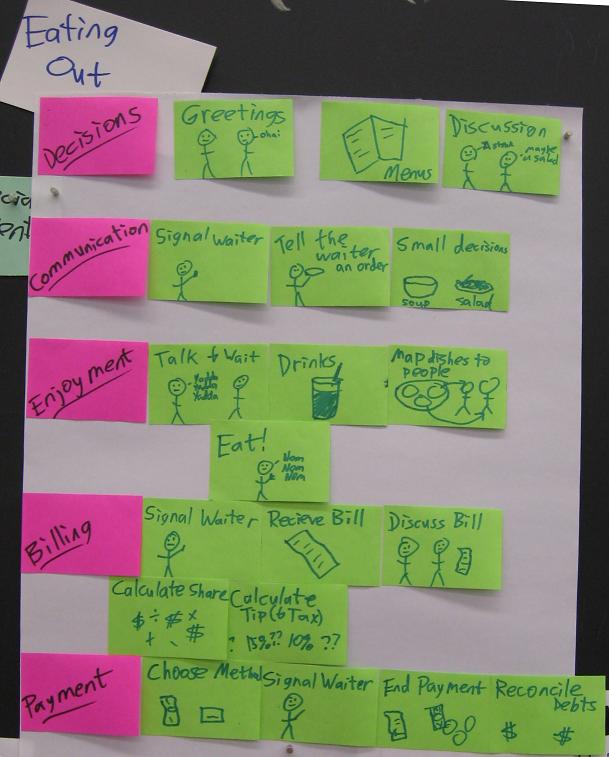 Eating
Out
Decisions
Greetings
ohai
Menus
Discussion
steak
maybe
a salad
Communication
Signal waiter
Tell the
waiter
an order
Small decisions
soup
salad
Enjoyment
Talk & Wait
Yadda
Yadda
Yadda
Drinks
Map dishes to
people
Eat!
Nom
Nom
Nom
Billing
Signal Waiter
Recieve Bill
Discuss Bill
Calculate Share
$ ÷ $ x
+ - $
Calculate
Tip (& Tax)
15%?? 10% ??
Payment
Choose Method
Signal Waiter
End Payment
Reconcile
Debts
$ $